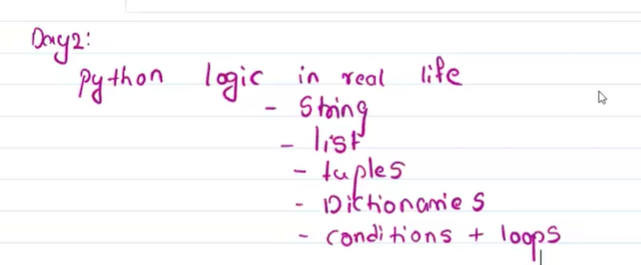 Day2:
Python logic in real life
- String
- list
- tuples
- Dictionaries
- conditions + loops